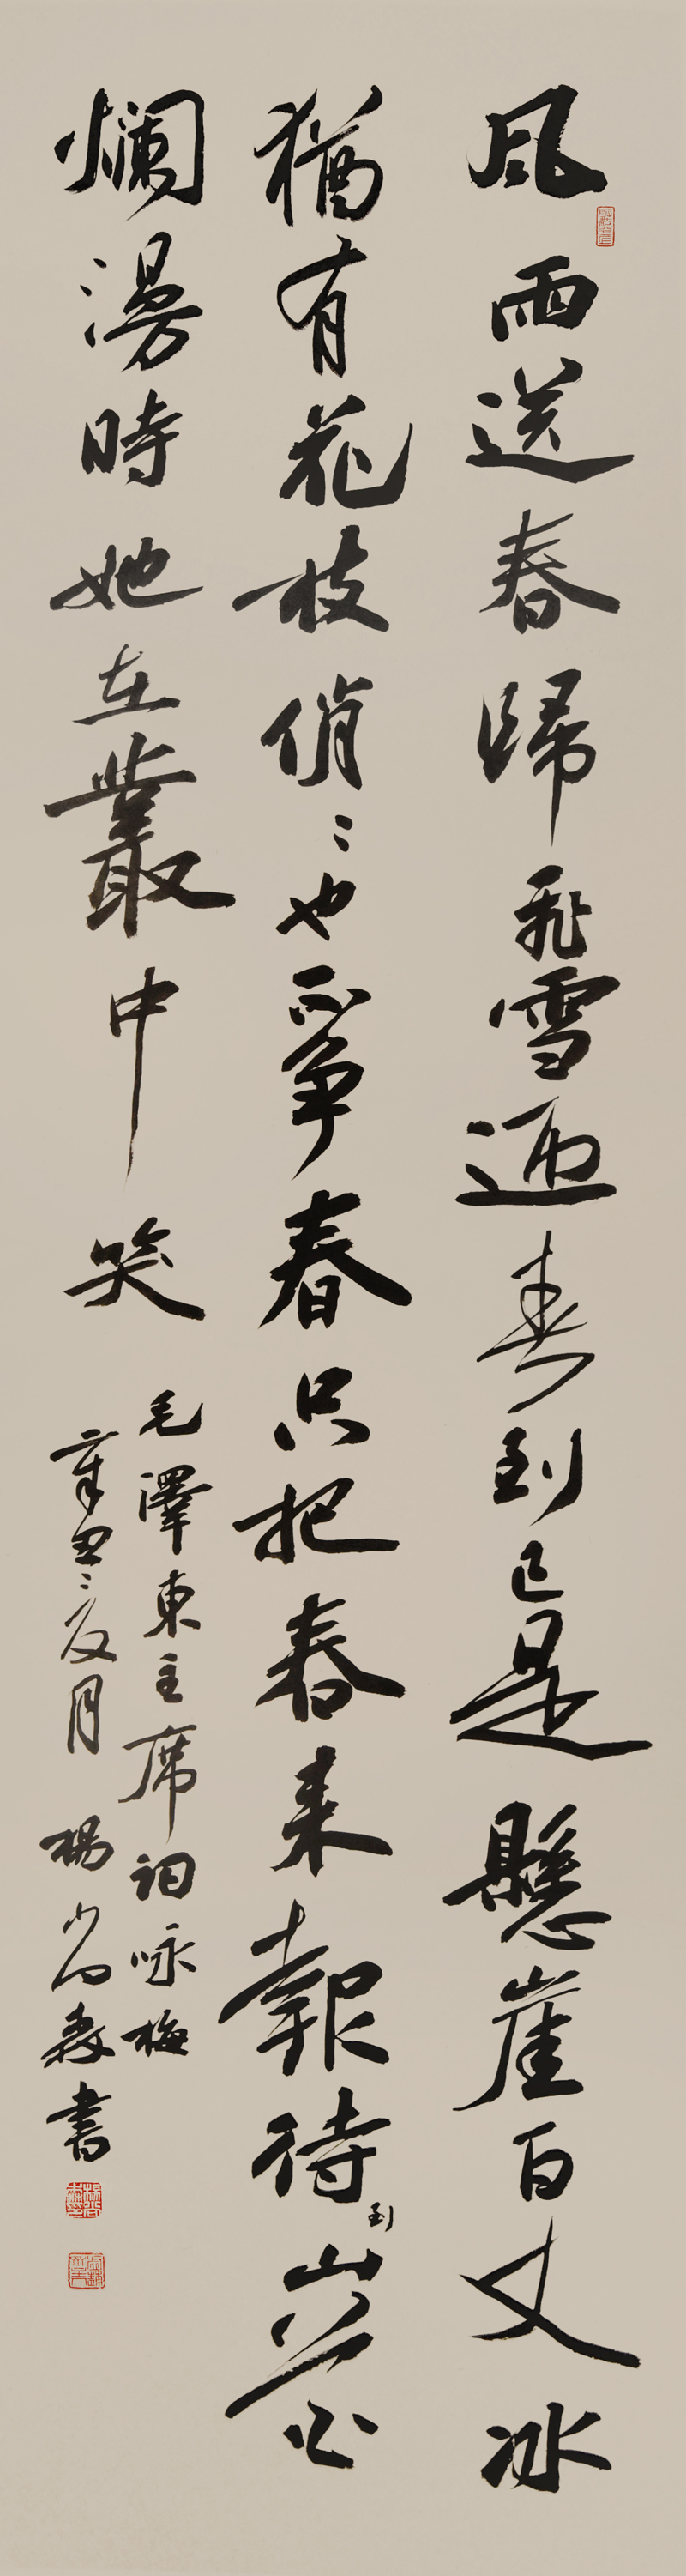 風雨送春歸飛雪迎春到已是懸崖百丈冰
猶有花枝俏〻也不爭春只把春来報待到山花
爛漫時她在叢中笑
毛澤東主席詞咏梅
辛丑〻夏月 楊 書